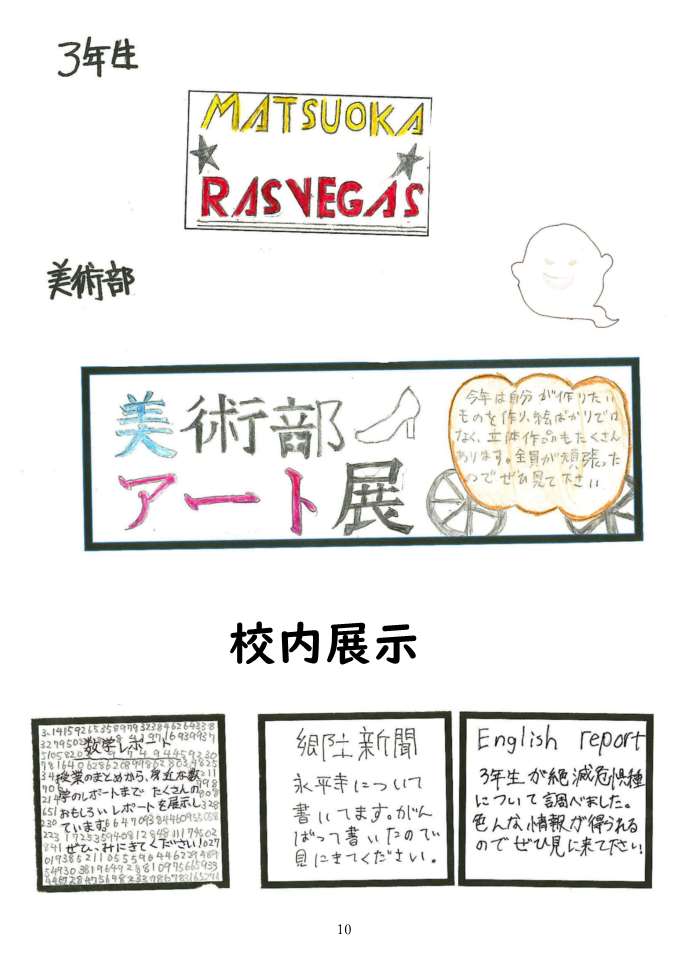 3年生
MATSUOKA
RASVEGAS
美術部
美術部
アート展
今年は自分が作りたい
ものを作り、絵ばかりでは
なく、立体作品もたくさん
あります。全員が頑張った
のでぜひ見て下さい
校内展示
数学レポート
授業のまとめから、身近な数
学のレポートまで たくさんの
おもしろいレポートを展示し
ています。
ぜひ、みにきてください!
郷土新聞
永平寺について
書いてます。がん
ばって書いたので
見にきてください。
English report
3年生が絶滅危惧種
について調べました。
色んな情報が得られる
のでぜひ見に来て下さい!
10